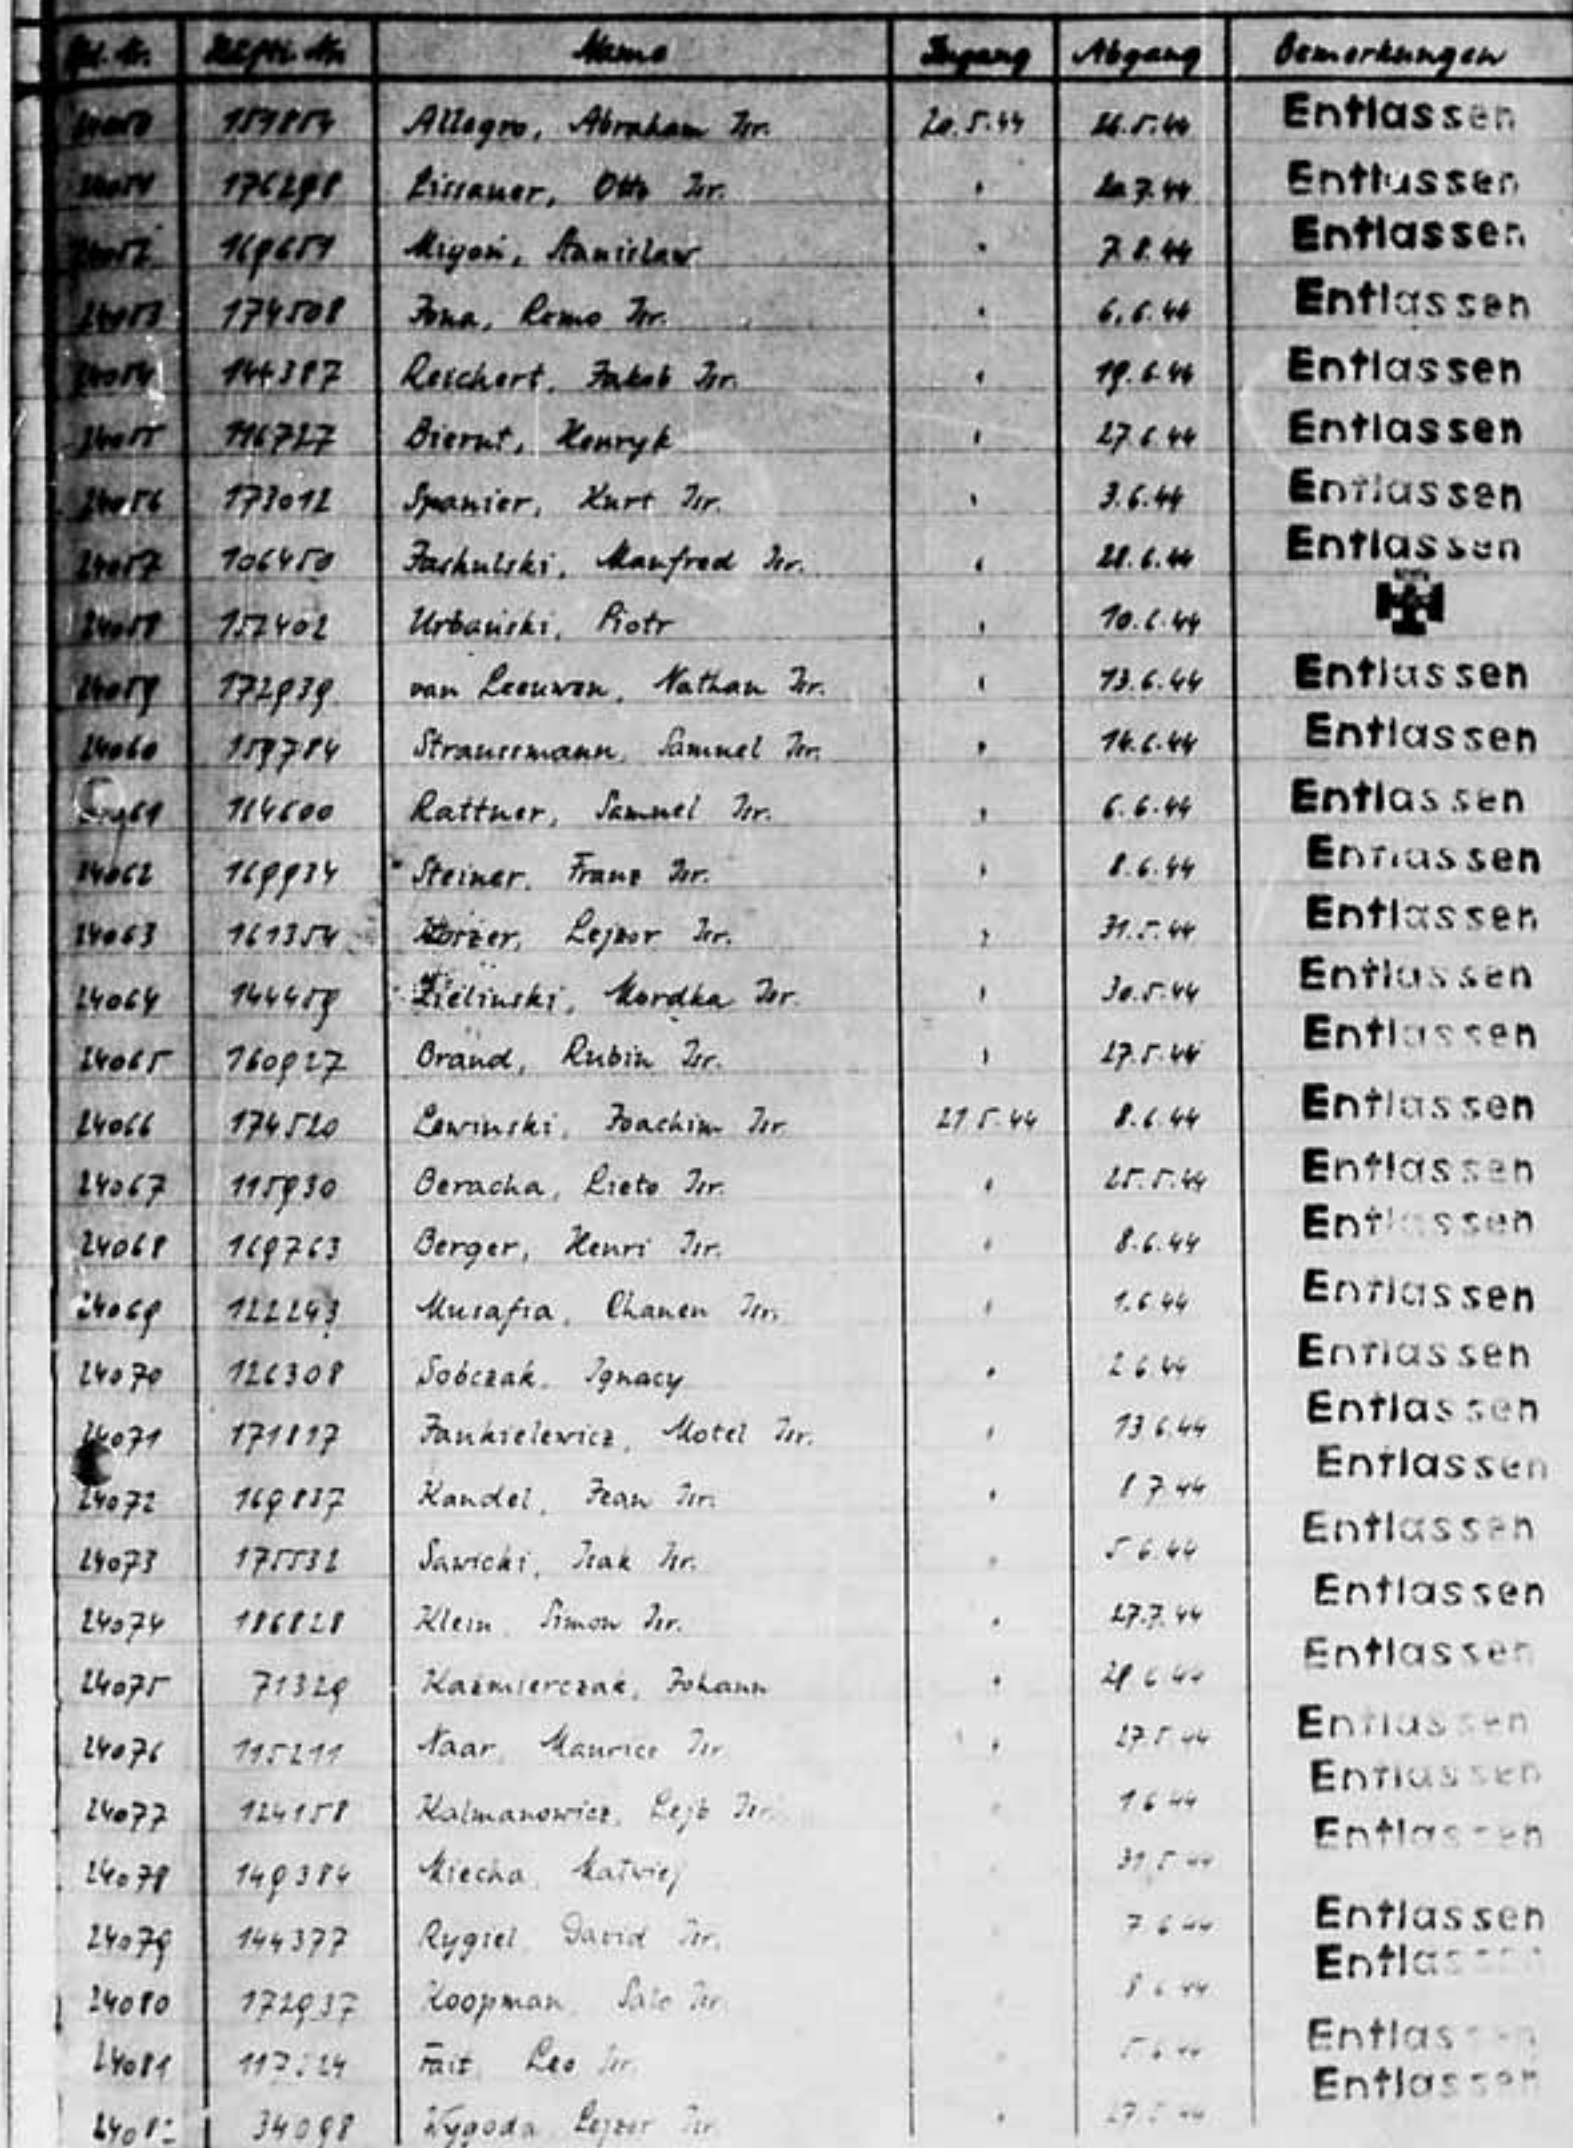 Lfd. Nr. Häftl. Nr. Name Zugang Abgang Bemerkungen
24050 159854 Allegro, Abraham Isr. 20.5.44 26.5.44 Entlassen
24051 176298 Lissauer, Otto Isr. " 20.7.44 Entlassen
24052 169651 Migoń, Stanislaw " 7.8.44 Entlassen
24053 174508 Jona, Remo Isr. " 6.6.44 Entlassen
24054 144387 Reichert, Jakob Isr. " 19.6.44 Entlassen
24055 116727 Biernt, Henryk " 27.6.44 Entlassen
24056 173012 Spanier, Kurt Isr. " 3.6.44 Entlassen
24057 106450 Jaskulski, Manfred Isr. " 28.6.44 Entlassen
24058 152402 Urbański, Piotr " 10.6.44
24059 172939 van Leeuwen, Nathan Isr. " 13.6.44 Entlassen
24060 159784 Straussmann, Samuel Isr. " 14.6.44 Entlassen
24061 164600 Rattner, Samuel Isr. " 6.6.44 Entlassen
24062 169934 Steiner, Franz Isr. " 8.6.44 Entlassen
24063 161354 Lejzor Isr. " 31.5.44 Entlassen
24064 144459 Zieliński, Mordka Isr. " 30.5.44 Entlassen
24065 160927 Brand, Rubin Isr. " 27.5.44 Entlassen
24066 174520 Lewinski, Joachim Isr. 21.5.44 8.6.44 Entlassen
24067 115930 Beracha, Lieto Isr. " 25.5.44 Entlassen
24068 169763 Berger, Henri Isr. " 8.6.44 Entlassen
24069 122243 Musafia, Chanen Isr. " 1.6.44 Entlassen
24070 126308 Sobczak, Ignacy " 2.6.44 Entlassen
24071 171817 Jankielewicz, Motel Isr. " 13.6.44 Entlassen
24072 169837 Kandel, Jean Isr. " 8.7.44 Entlassen
24073 175532 Sawicki, Isak Isr. " 5.6.44 Entlassen
24074 186828 Klein, Simon Isr. " 27.7.44 Entlassen
24075 71329 Kaźmierczak, Johann " 28.6.44 Entlassen
24076 115211 Naar, Maurice Isr. " 27.5.44 Entlassen
24077 124158 Kalmanowicz, Lejb Isr. " 1.6.44 Entlassen
24078 149384 Miecha, Matwiej " 31.5.44 Entlassen
24079 144377 Rygiel, David Isr. " 7.6.44 Entlassen
24080 172937 Koopman, Salo Isr. " 8.6.44 Entlassen
24081 Fait, Leo Isr. " 5.6.44 Entlassen
24082 34098 Wygoda, Lejzor Isr. " 27.5.44 Entlassen